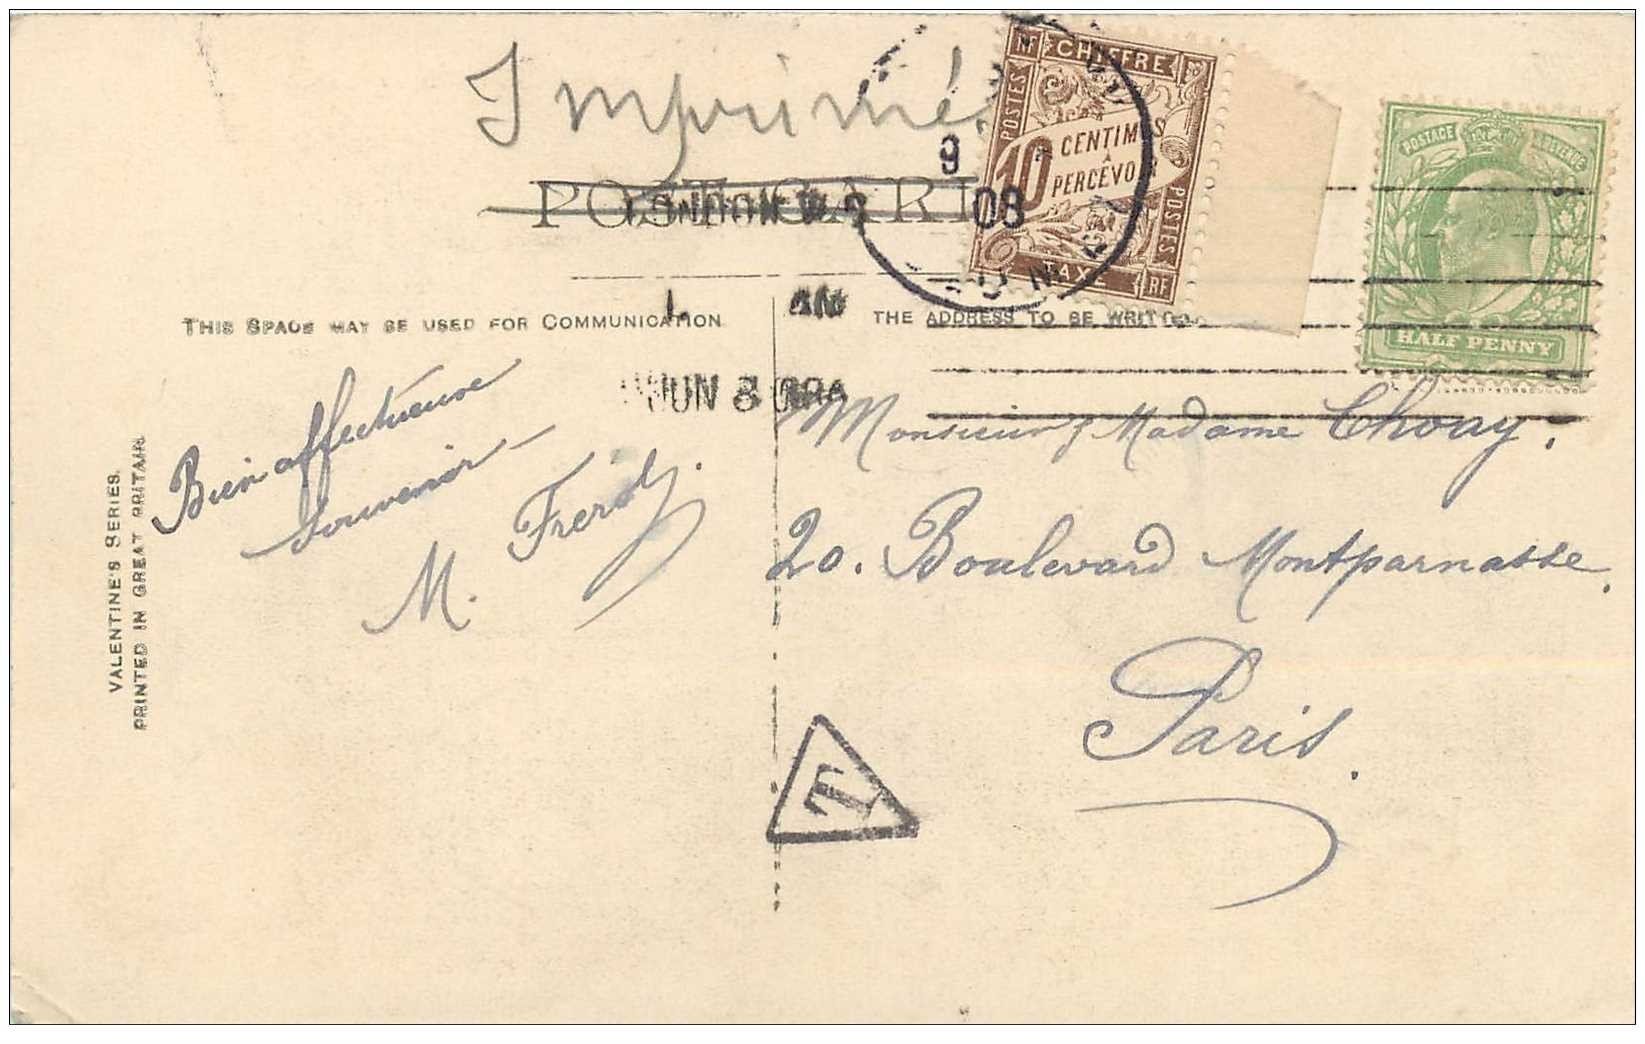 Imprimé.
POST CARD
LONDON W
9
08
RF CHIFFRE
POSTES
10 CENTIMES
À
PERCEVO
POSTES
TAXE RF
POSTAGE REVENUE
HALF PENNY
THIS SPACE MAY BE USED FOR COMMUNICATION
THE ADDRESS TO BE WRITT
JUN 8
Bien affectueuse
souvenir
M.
Monsieur & Madame Choay.
20. Boulevard Montparnasse.
Paris.
VALENTINE'S SERIES.
PRINTED IN GREAT BRITAIN
T